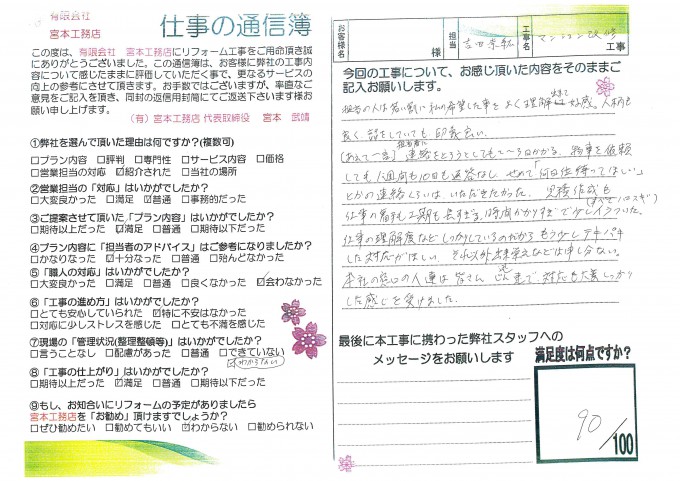 有限会社
宮本工務店
仕事の通信簿
この度は、有限会社 宮本工務店にリフォーム工事をご用命頂き誠
にありがとうございました。この通信簿は、お客様に弊社の工事内
容について感じたままに評価していただく事で、更なるサービスの
向上の参考にさせて頂きます。お手数ではございますが、率直なご
意見をご記入を頂き、同封の返信用封筒にてご返送下さいます様お
願い申し上げます。
(有)宮本工務店 代表取締役 宮本 武靖
①弊社を選んで頂いた理由は何ですか?(複数可)
□プラン内容 □評判 □専門性 □サービス内容 □価格
□営業担当の対応 ☑紹介された □当社の場所
②営業担当の「対応」はいかがでしたか?
□大変良かった ☑満足 □普通 □事務的だった
③ご提案させて頂いた「プラン内容」はいかがでしたか?
□期待以上だった ☑満足 □普通 □期待以下だった
④プラン内容に「担当者のアドバイス」はご参考になりましたか?
□かなりなった ☑十分なった □普通 □殆んどなかった
⑤「職人の対応」はいかがでしたか?
□大変良かった ☑満足 □普通 □良くなかった ☑会わなかった
⑥「工事の進め方」はいかがでしたか?
□とても安心していられた ☑特に不安はなかった
□対応に少しストレスを感じた □とても不満を感じた
⑦現場の「管理状況(整理整頓等)」はいかがでしたか?
□言うことなし □配慮があった □普通 □できていない
☑わからない
⑧「工事の仕上がり」はいかがでしたか?
□期待以上だった ☑満足 □普通 □期待以下だった
⑨もし、お知合いにリフォームの予定がありましたら
宮本工務店を「お勧め」頂けますでしょうか?
□ぜひ勧めたい □勧めてもいい ☑わからない □勧められない
お客様名
様
担当
工事名
マンション改修
工事
今回の工事について、お感じ頂いた内容をそのままご
記入お願いします。
担当の人は若い割に私の希望した事をよく理解 好感。人柄も
良く話をしていても印象良い。
(あえて一言)
担当者に
連絡をとろうとしても 日かかる。物事を依頼
しても1週間も10日も返答なし。せめて「何日位待ってほしい」
とかの連絡くらいは、いただきたかった。見積作成も
仕事の着手も工期も長すぎる。時間かかりすぎで少しイラついた。
(すべてバラスギ)
仕事の理解度などしっかりしているのだからもう少しテキパキ
した対応がほしい。それ以外出来栄えなどは申し分ない。
本社の窓口の人達は皆さん 対応も大変しっかり
した感じを受けました。
最後に本工事に携わった弊社スタッフへの
メッセージをお願いします
満足度は何点ですか?
90/100